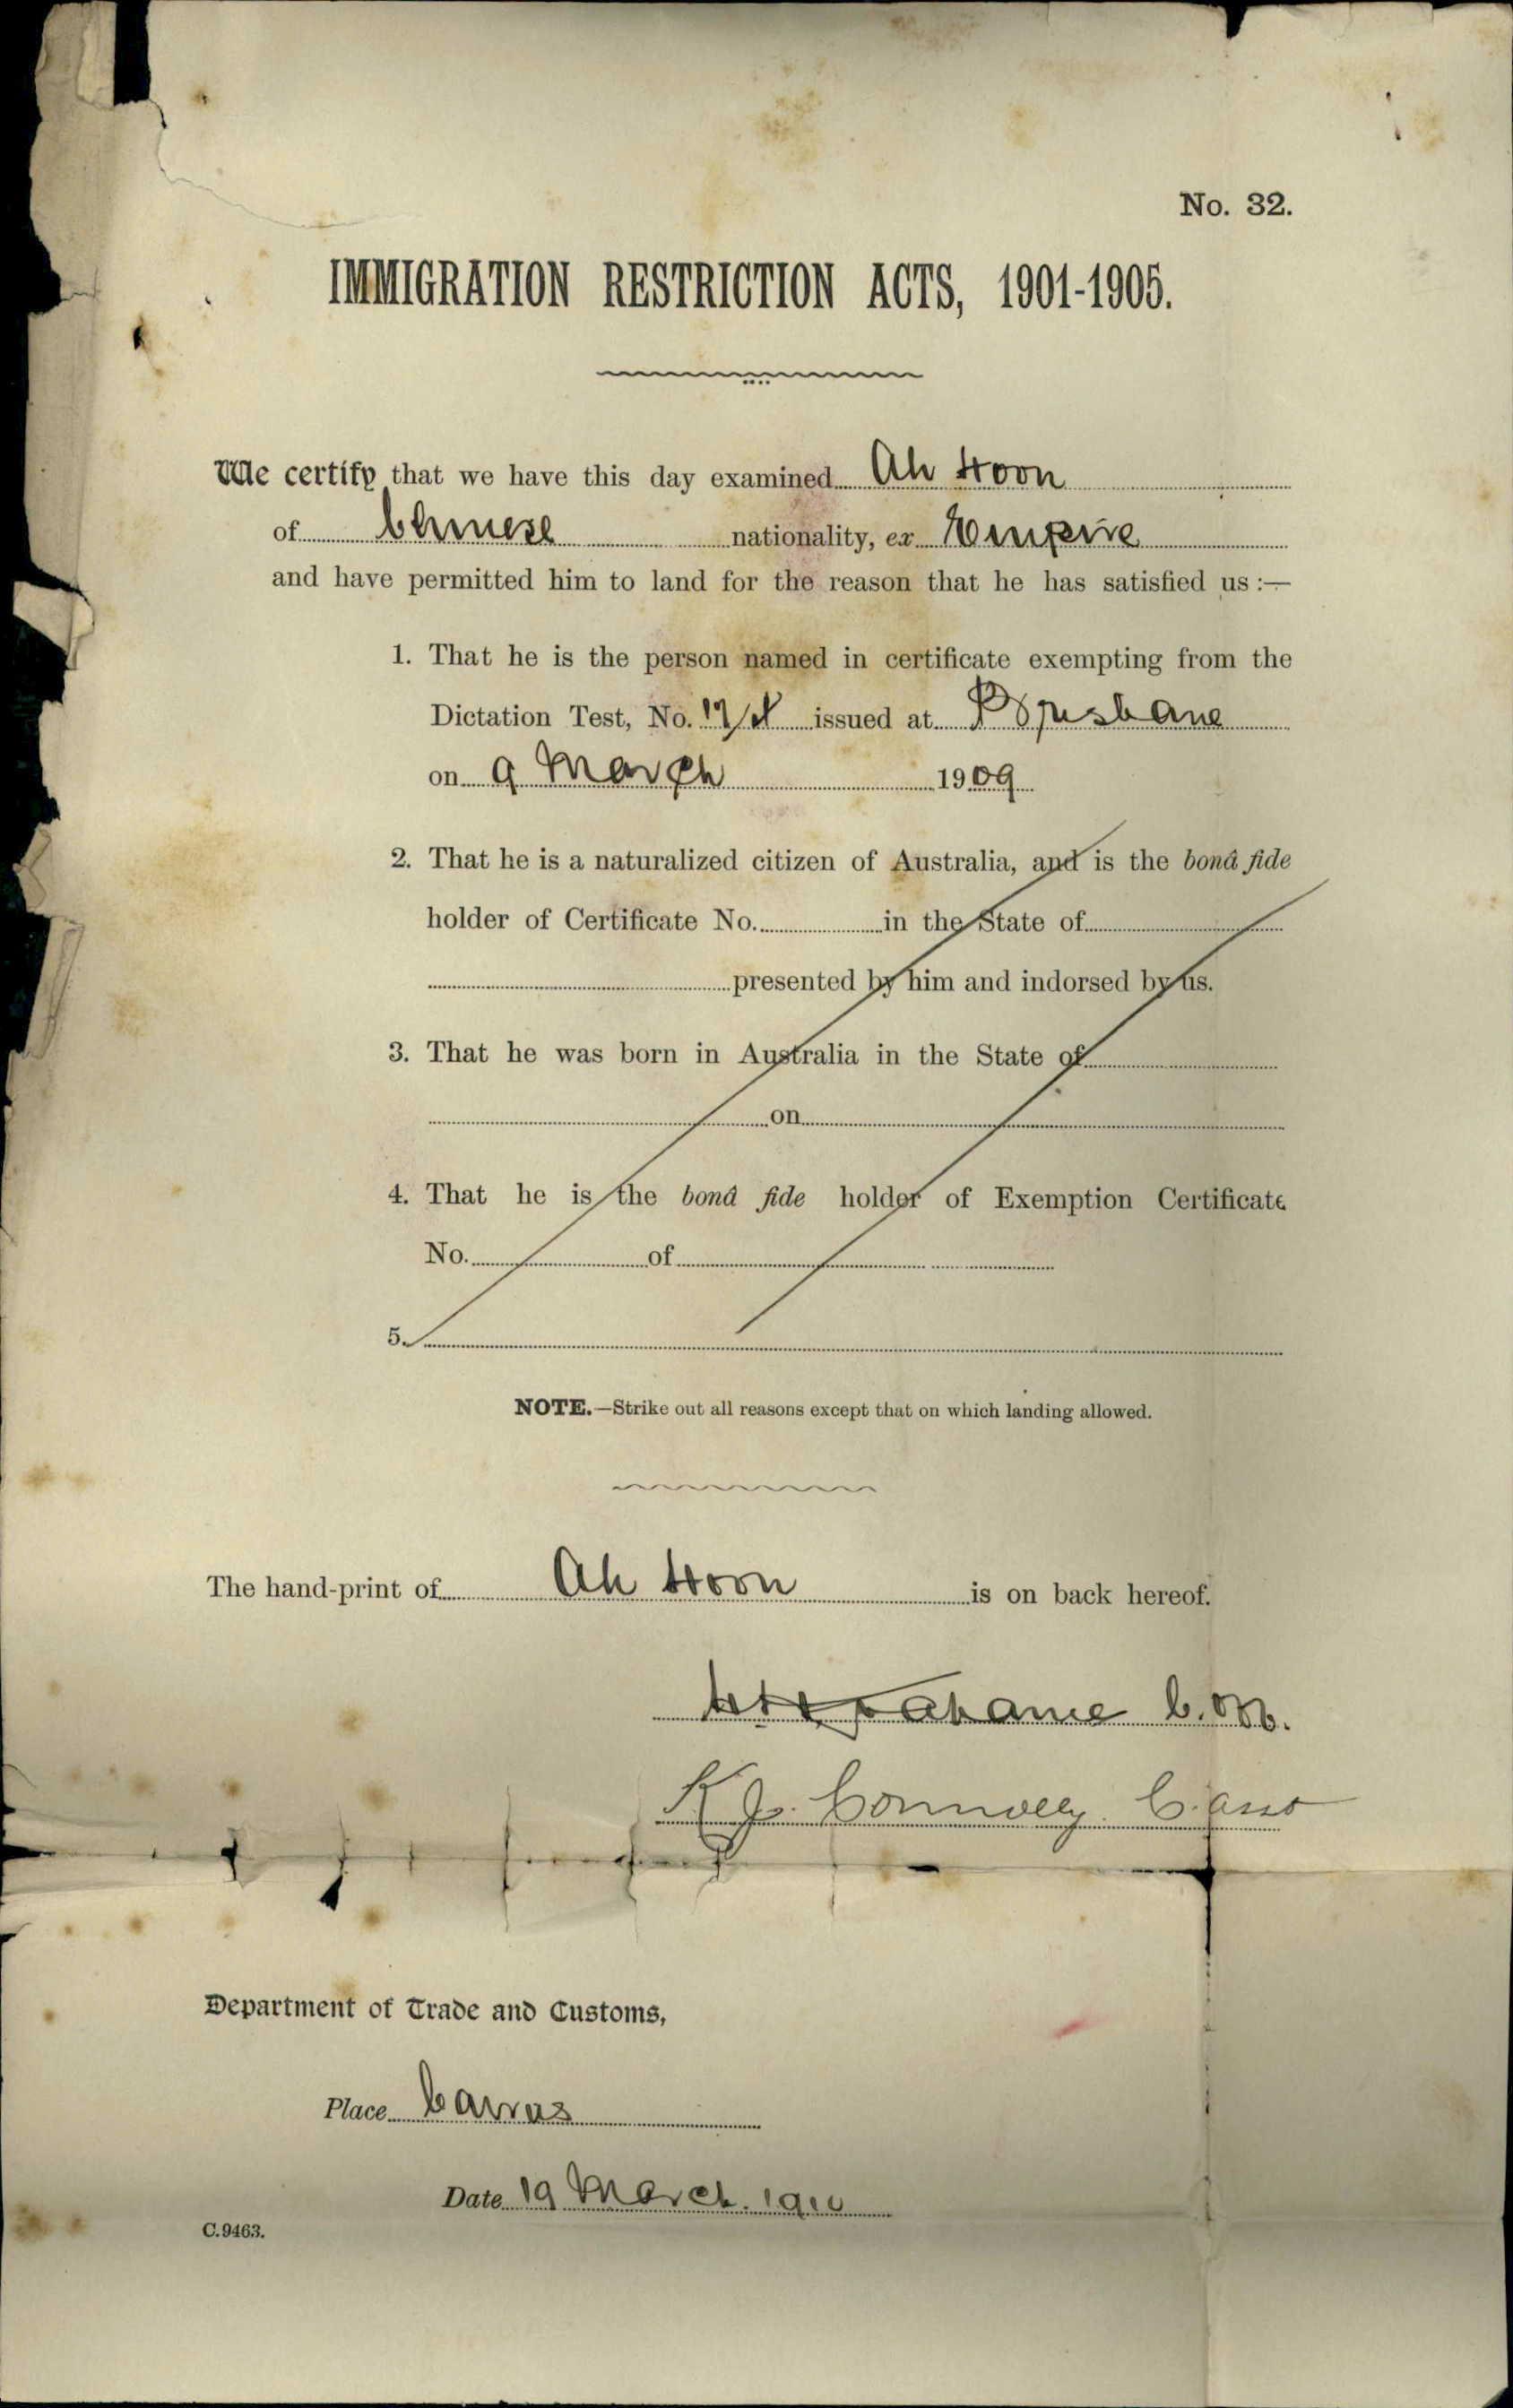 No. 32.
IMMIGRATION RESTRICTION ACTS, 1901-1905.
We certify that we have this day examined Ah Hoon
of Chinese nationality, ex Empire
and have permitted him to land for the reason that he has satisfied us :—
1. That he is the person named in certificate exempting from the
Dictation Test, No. issued at Brisbane
on 9 March 1909
2. That he is a naturalized citizen of Australia, and is the bonâ fide
holder of Certificate No. in the State of
presented by him and indorsed by us.
3. That he was born in Australia in the State of
on
4. That he is the bonâ fide holder of Exemption Certificate
No. of
5.
NOTE.—Strike out all reasons except that on which landing allowed.
The hand-print of Ah Hoon is on back hereof.
K J. Connolly C. asst
Department of Trade and Customs,
Place Cairns
Date 19 March. 1910
C.9463.